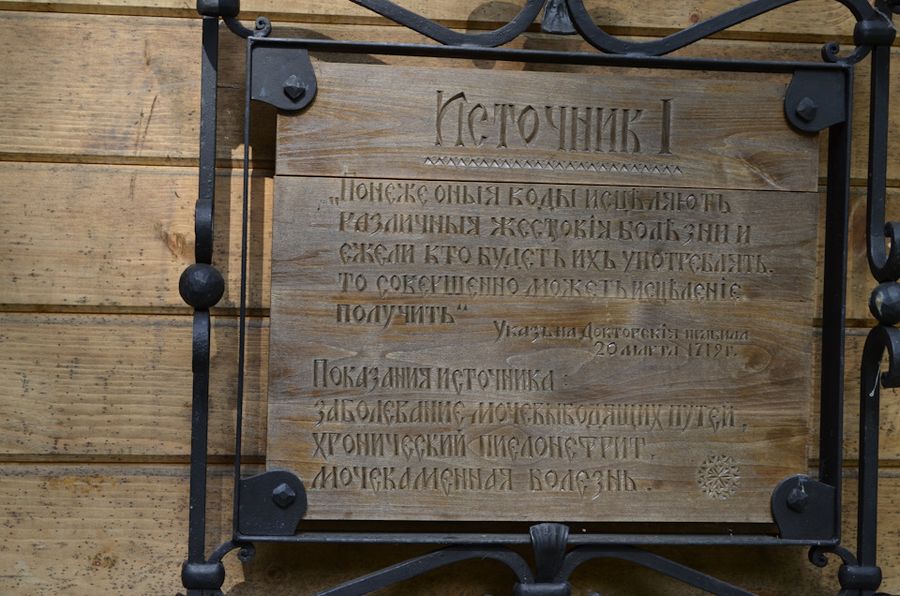 Источник I
„Понеже оныя воды исцѣляютъ
различныя жестокія болѣзни и
ежели кто будетъ ихъ употреблять.
то совершенно можетъ исцѣленіе
получить“
Указъ на Докторскія правила
20 марта 1719г.
Показания источника :
заболевание мочевыводящих путей,
хронический пиелонефрит,
мочекаменная болезнь.